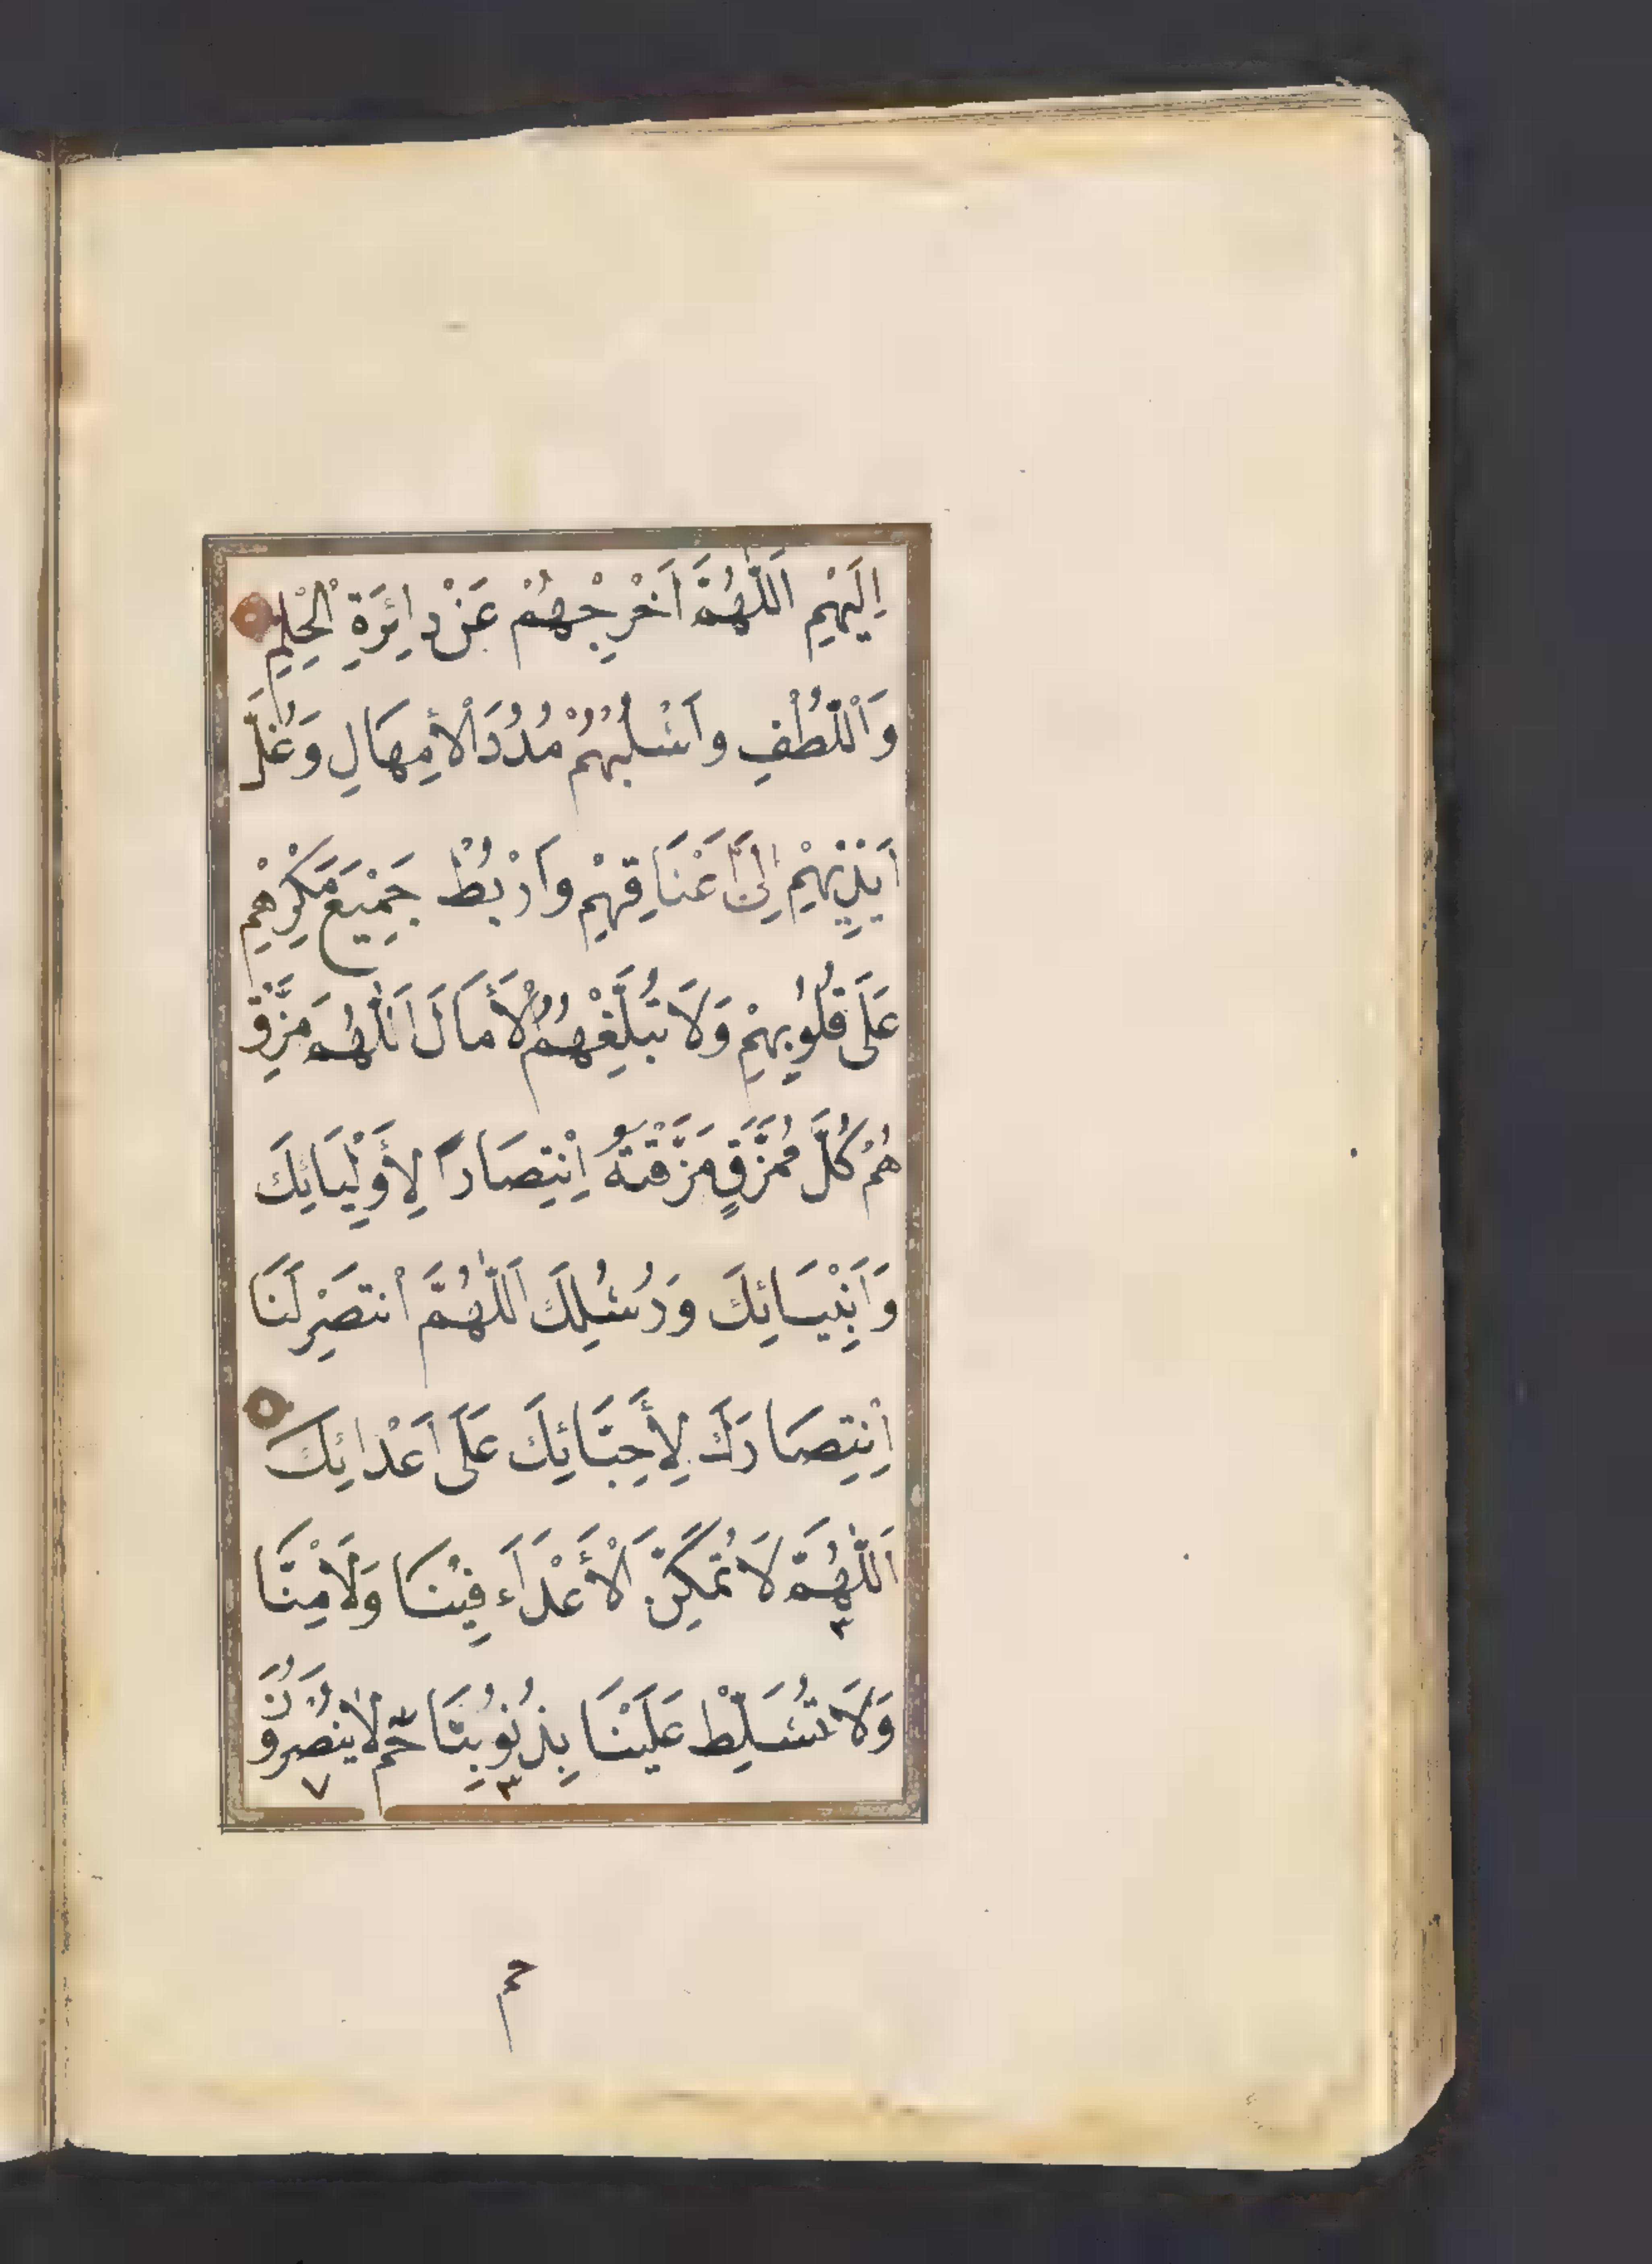 اِلَيْهِم اَللّٰهُمَّ اَخْرِجْهُمْ عَنْ دائِرَةِ الْحِلْمِ
وَاللُّطْفِ واَسْلُبْهُمْ مُدُدَ الْأِمهَالِ وَغُلَّ
اَيْذِيهِمْ اِلىٰ اَعْنَاقِهِمْ وَارْبُطْ جَمْيِعَ مَكْرِهِمْ
عَلَى قُلُوبِهِمْ وَلَا تُبَلِّغْهُمُ الْأَمَالَ اَللّٰهُمَّ مَزِّقْ
هُمْ كُلَّ مُمَزَّقٍ مَزَّقْتَهُ اِنْتِصَارًا لِأَوْلِيَائِكَ
وَاَنْبِيَائِكَ وَرُسُلِكَ اَللّٰهُمَّ اْنتَصِرْ لَنَا
اِنْتِصَارَكَ لِأَحِبَّائِكَ عَلَى اَعْدائِكَ
اَللّٰهُمَّ لَا تُمَكِّنِ الْأَعْدَاءَ فِيْنَا وَلَا مِنَّا
٣
وَلَا تُسَلِّطْ عَلَيْنَا بِذُنُوبِنَا حٓم لَا يُنْصَرُونَ
٣ ٧
حم